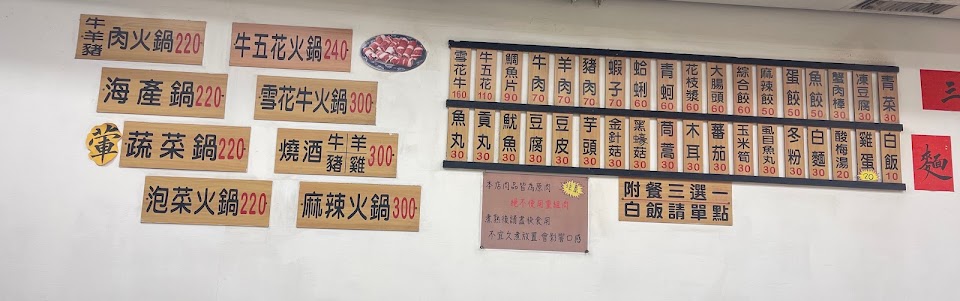 牛羊豬肉火鍋220
海產鍋220
葷
蔬菜鍋220
泡菜火鍋220
牛五花火鍋240
雪花牛火鍋300
燒酒牛羊豬雞300
麻辣火鍋300
雪花牛160
牛五花110
鯛魚片90
牛肉70
羊肉70
豬肉70
蝦子70
蛤蜊60
青蚵60
花枝漿60
大腸頭60
綜合餃50
麻辣餃50
蛋餃50
魚餃50
蟹肉棒30
凍豆腐30
青菜30
魚丸30
貢丸30
魷魚30
豆腐30
豆皮30
芋頭30
金針菇30
黑蠔菇30
茼蒿30
木耳30
蕃茄30
玉米筍30
虱目魚丸30
冬粉30
白麵30
酸梅湯20
雞蛋20
白飯10
本店肉品皆為原肉
絕不使用重組肉
煮熟後請盡快食用
不宜久煮放置,會影響口感
附餐三選一
白飯請單點
三
麵